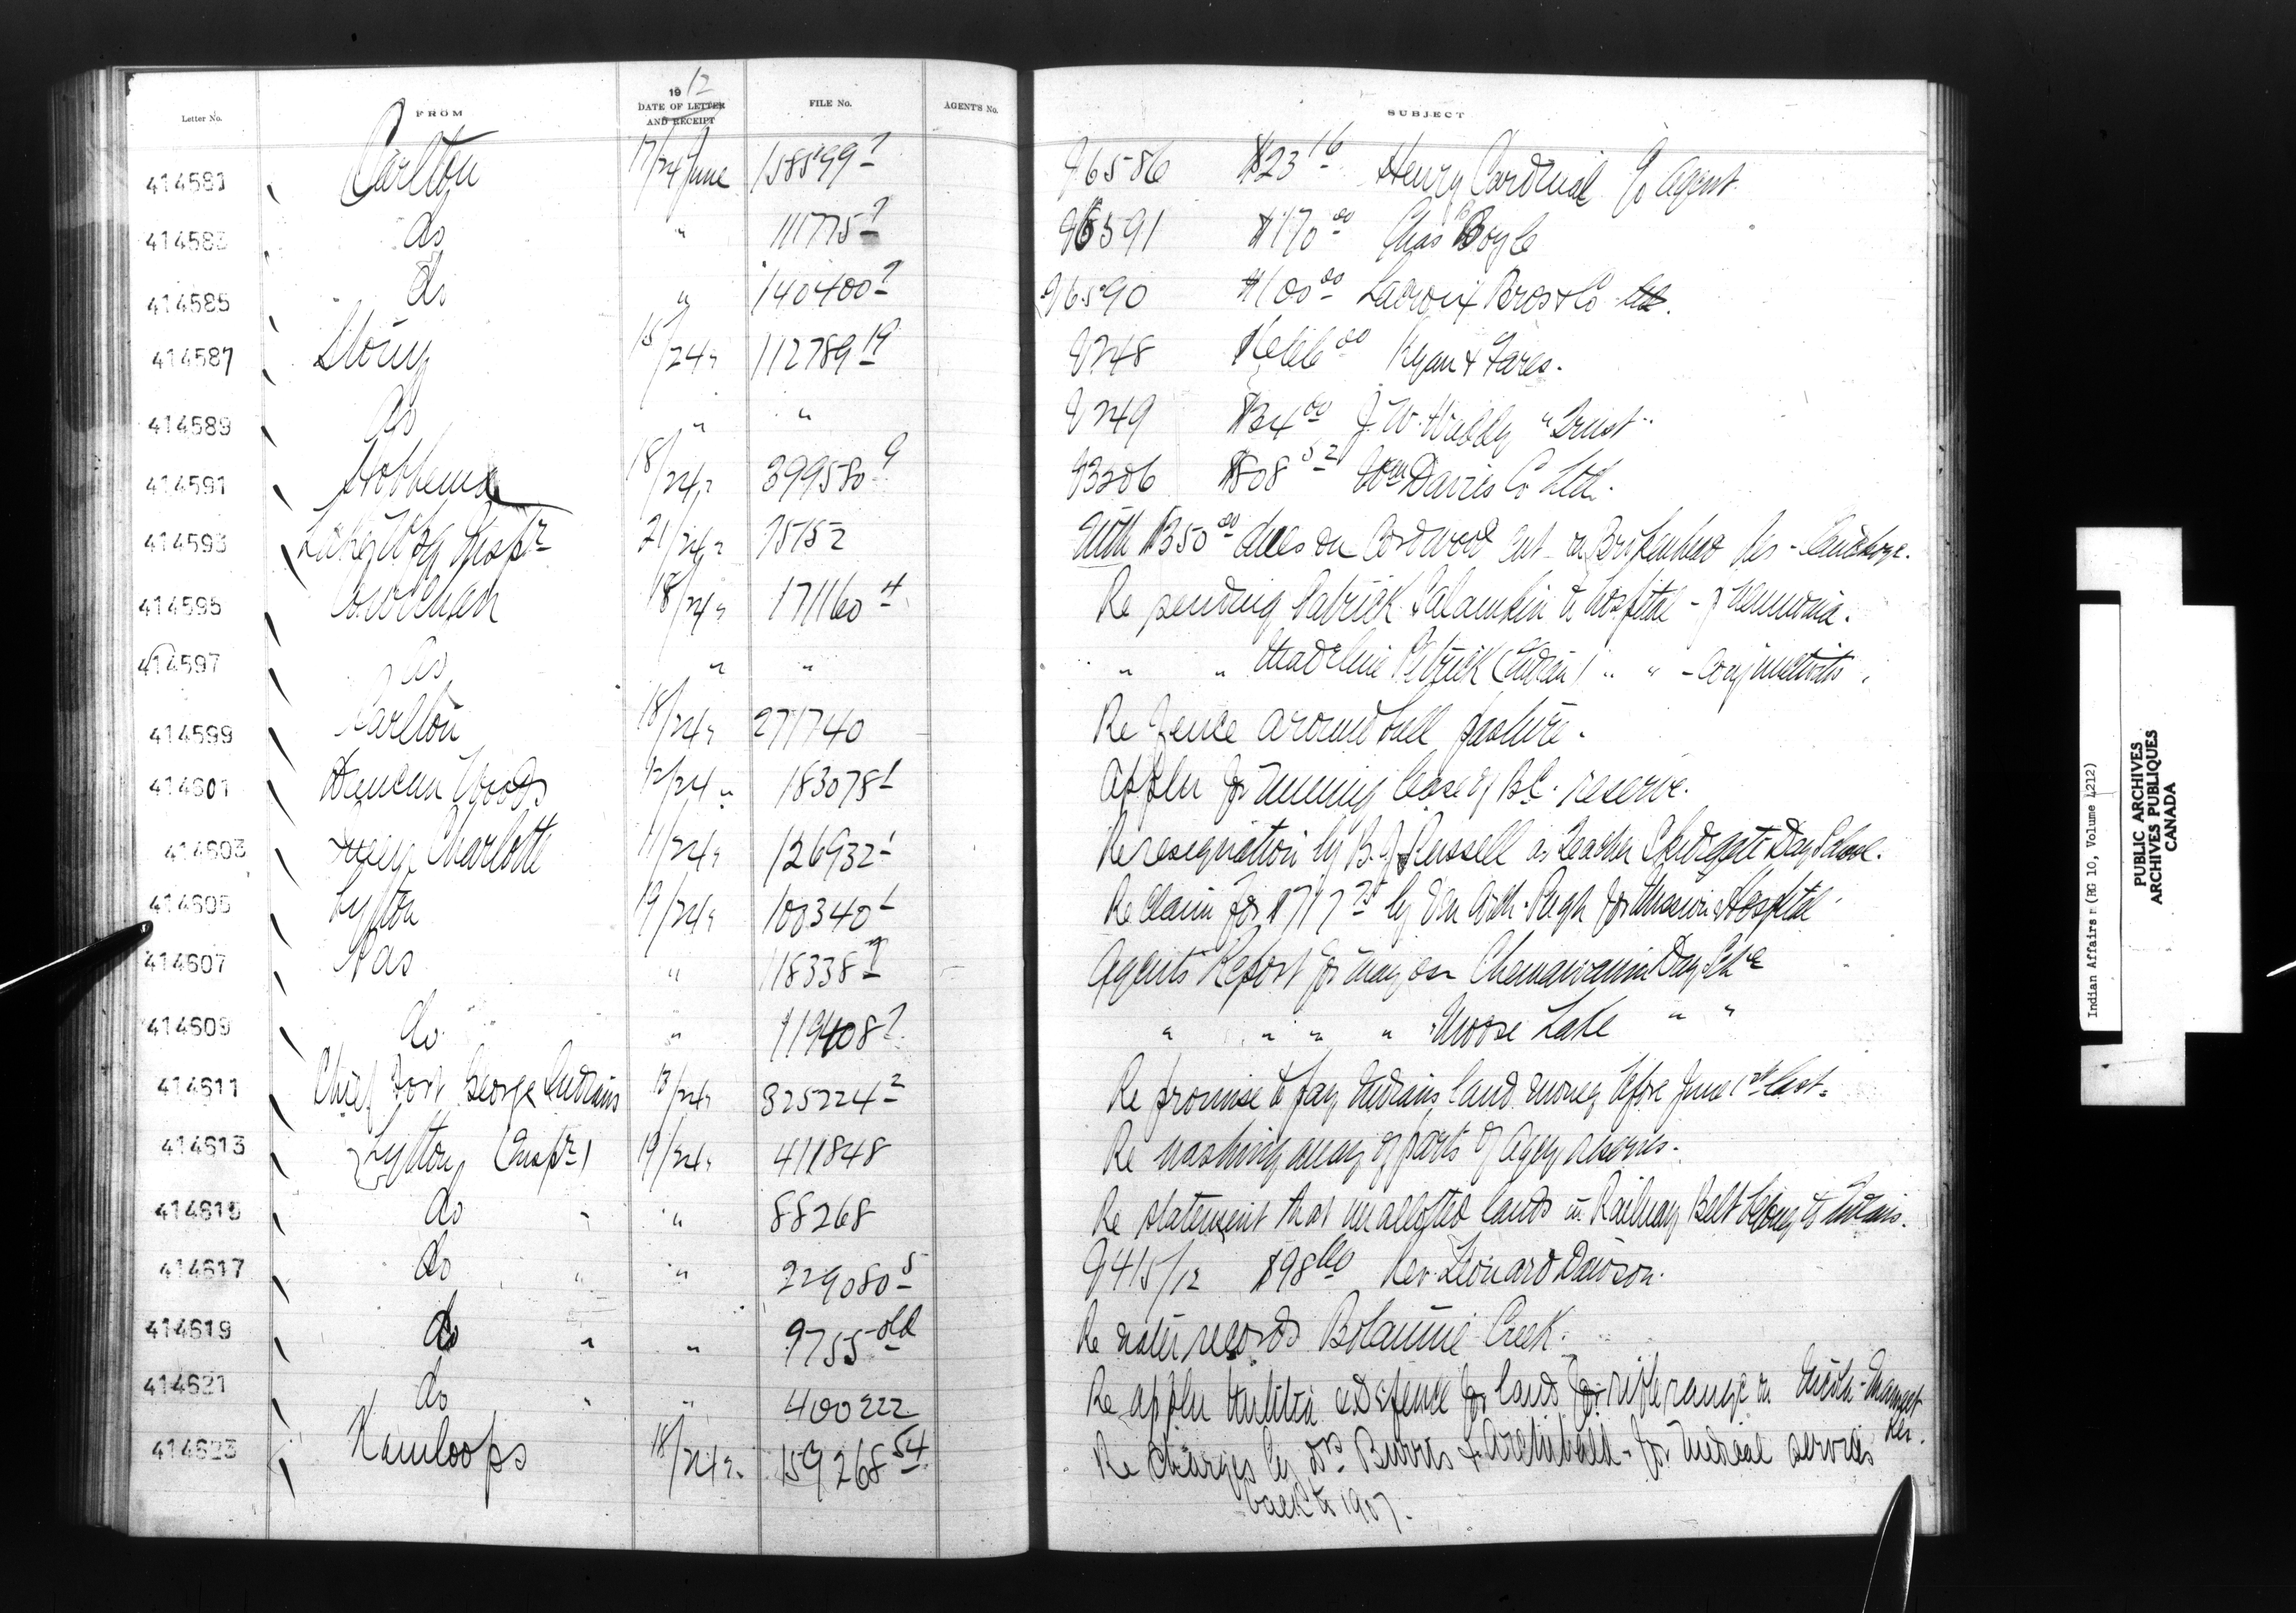 1912
Letter No. FROM DATE OF LETTER AND RECEIPT FILE No. AGENT'S No. SUBJECT
414581 Carlton 17/24 June 158599 96586 $23 16 Henry Cardinal c/o Agent
414583 do " 111775 96591 $170 00 Chas Boyle
414585 do " 140400 96590 $100 00 Lacroix Bros & Co
414587 Stony 15/24 " 112789 19 9248 00 Ryan & Fares.
414589 do " " 9249 00 J. W. "Trust"
414591 Hobbema 18/24 " 399580 9 93206 $808 52 Wm Davies Co Ltd.
414593 Inspr 21/24 " 75152 With $350 00 dues on Cordwood cut on Brokenhead Res -
414595 Cowichan 18/24 " 171160 4 Re sending Patrick to hospital -
414597 do " " " " Madeline (Indian) " " - Conjunctivitis
414599 Carlton 18/24 " 271740 Re fence around bull pasture.
414601 Duncan Woods 12/24 " 183078 1 Appln for mining lease of B.C. reserve.
414603 Queen Charlotte 11/24 " 126932 1 Re resignation by B. J. Russell as teacher Skidegate Day School.
414605 Lytton 19/24 " 100340 1 Re claim for $717 75 by Ven Arch. Pugh for Mission Hospital
414607 Pas " 118338 Agents Report for May on Chemawawin Day Schl
414609 do " 119408 " " " " Moose Lake " "
414611 Chief Fort George Indians 13/24 " 325224 2 Re promise to pay Indians land money before June 1st last.
414613 Lytton (Inspr) 19/24 " 411848 Re washing away of parts of Agcy reserves.
414615 do " " 88268 Re statement that unallotted lands in Railway Belt belong to Indians.
414617 do " " 229080 5 9415/12 $98 60 Rev. Leonard Dawson.
414619 do " " 9755 old Re water records Botannie Creek.
414621 do " " 400222 Re appln Militia & Defence for land for rifle range on Res.
414623 Kamloops 18/24 " 159268 54 Re charges by Drs Burris & Archibald - for medical services
back to 1907.
Indian Affairs (RG 10, Volume 4212)
PUBLIC ARCHIVES
ARCHIVES PUBLIQUES
CANADA